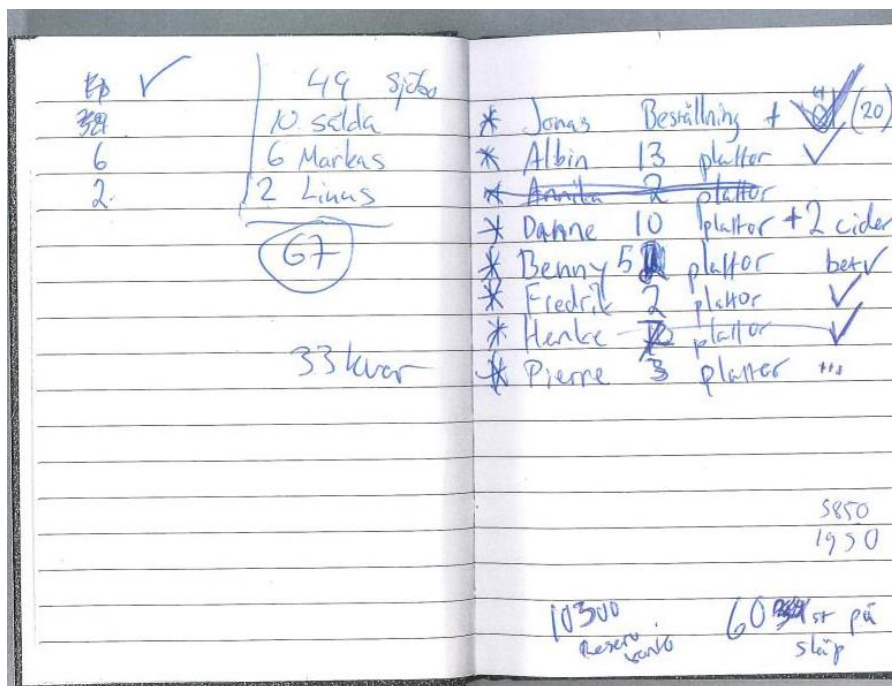 ✓ 49 Sjöbo
10 sålda
6 6 Markas
2 2 Linus
67
33 kvar
* Jonas Beställning + ✓ (20)
* Albin 13 plattor ✓
* Annika 2 plattor
* Danne 10 plattor + 2 cider
* Benny 5 plattor bet ✓
* Fredrik 2 plattor ✓
* Henke plattor ✓
* Pierre 3 plattor
5850
1950
10300
Reserv konto
60 st på
släp